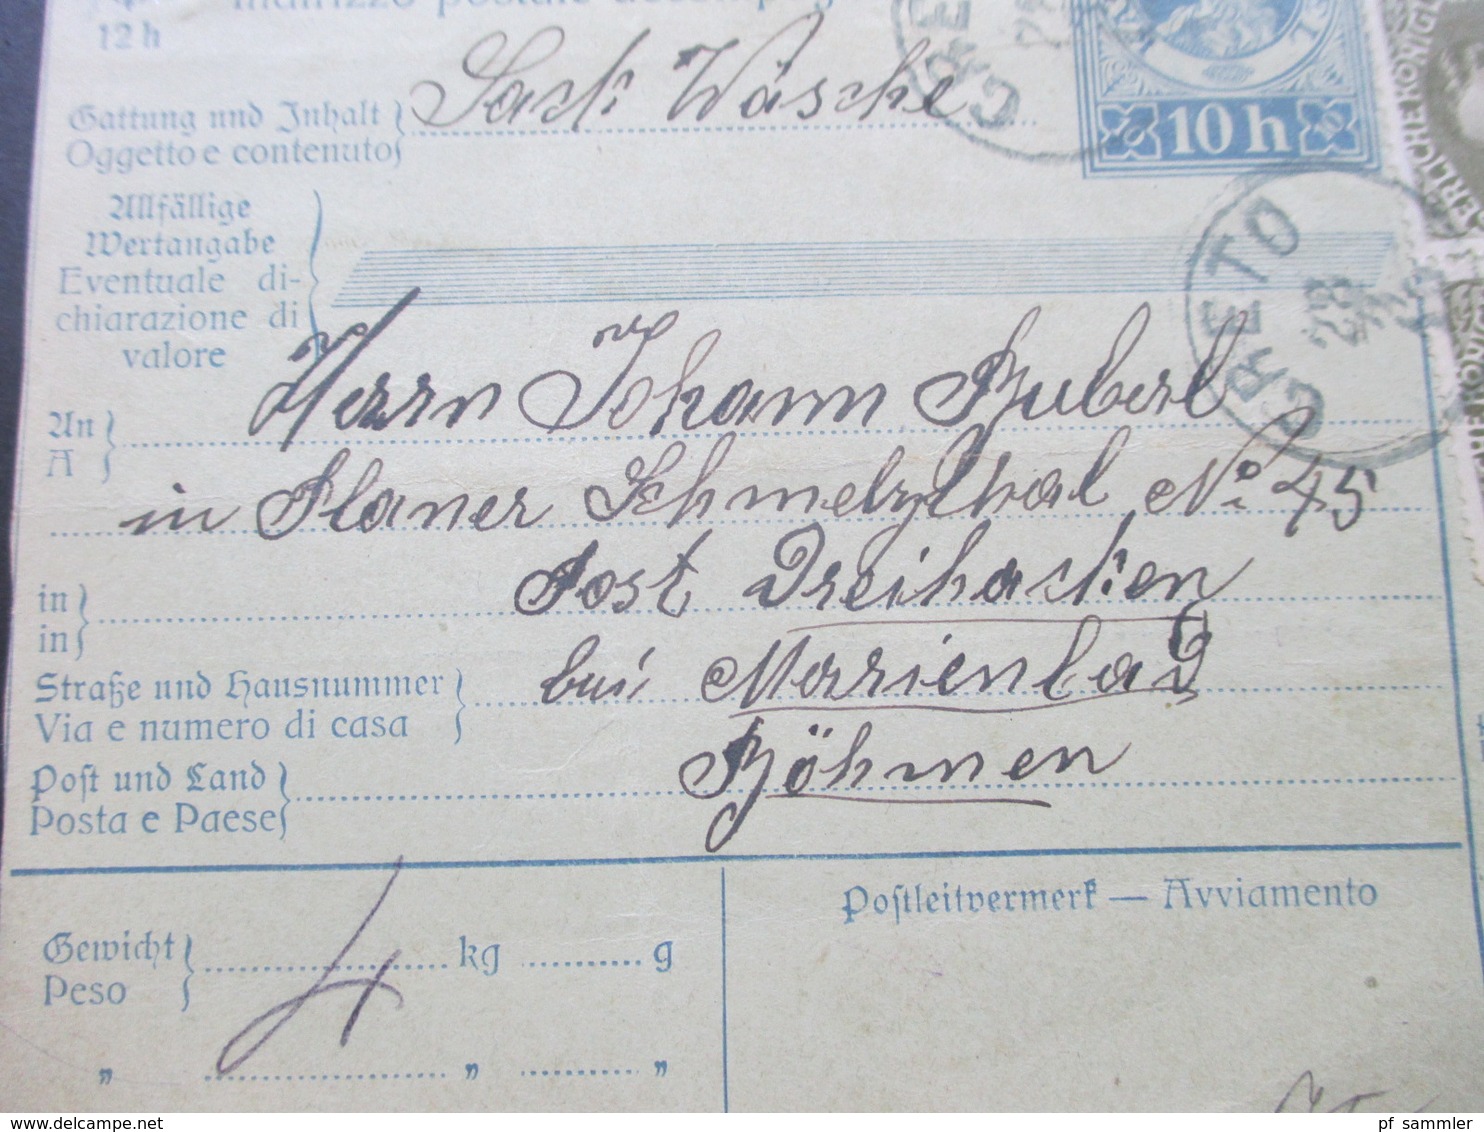 Indirizzo postale
12 h
Gattung und Inhalt
Oggetto e contenuto
Sack Wäsche
10 h
Allfällige
Wertangabe
Eventuale di-
chiarazione di
valore
GRETO
An
A
Herrn Johann Buberl
in Planer Schmelzthal No 45
in
in
Post Dreihacken
Straße und Hausnummer
Via e numero di casa
bei Marienbad
Post und Land
Posta e Paese
Böhmen
Postleitvermerk — Avviamento
Gewicht
Peso
4 kg g
" " "
pf_sammler